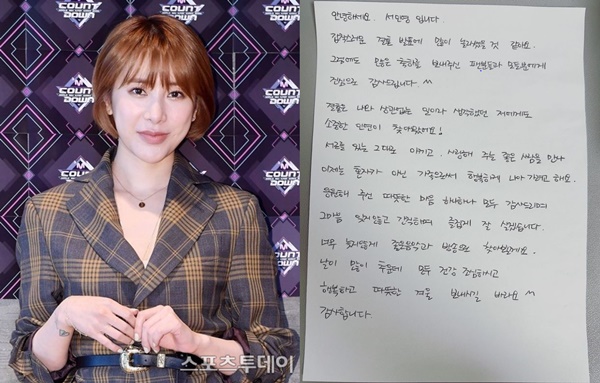 COUNT
DOWN
스포츠투데이
안녕하세요. 서인영 입니다.
갑작스러운 결혼 발표에 많이 놀라셨을 것 같아요.
그럼에도 많은 축하를 보내주신 팬분들과 모든분들에게
진심으로 감사드립니다. ^^
결혼은 나와 상관없는 일이라 생각했던 저에게도
소중한 인연이 찾아왔어요!
서로를 있는 그대로 아끼고, 사랑해 주는 좋은 사람을 만나
이제는 혼자가 아닌 가족으로써 행복하게 나아가려고 해요.
응원해 주신 따뜻한 마음 하나하나 모두 감사드리며
그마음 잊지않고 간직하며 즐겁게 잘 살겠습니다.
너무 늦지않게 좋은음악과 방송으로 찾아뵐게요.
날이 많이 추운데 모두 건강 조심하시고
행복하고 따뜻한 겨울 보내시길 바라요 ^^
감사합니다.